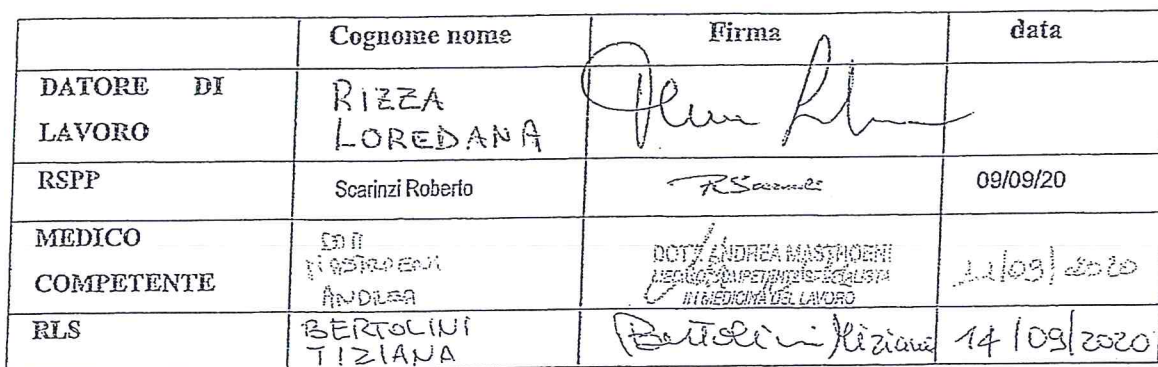 Cognome nome Firma data
DATORE DI
LAVORO
RIZZA
LOREDANA
RSPP Scarinzi Roberto R Scarinzi 09/09/20
MEDICO
COMPETENTE
DOTT
MASTROENI
ANDREA
DOTT. ANDREA MASTROENI
MEDICO COMPETENTE SPECIALISTA
IN MEDICINA DEL LAVORO
11/09/2020
RLS
BERTOLINI
TIZIANA
Bertolini Tiziana 14/09/2020